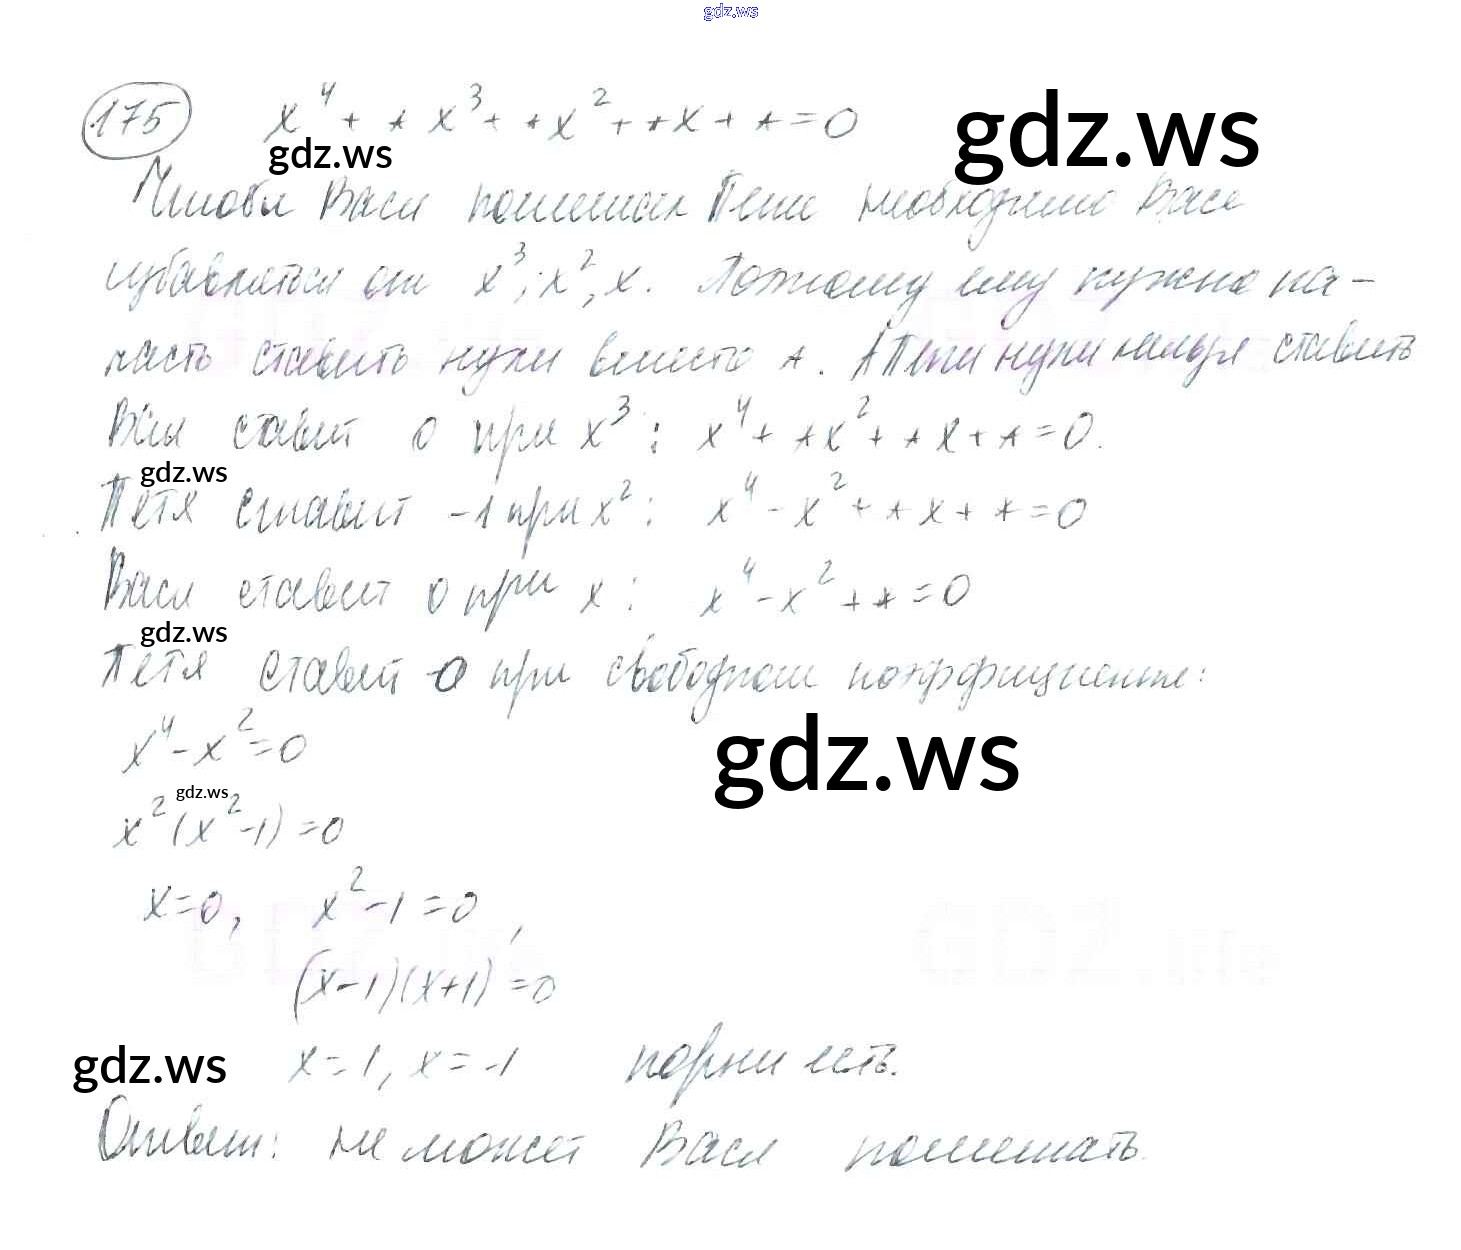 gdz.ws
175 x⁴ + * x³ + * x² + * x + * = 0
gdz.ws gdz.ws
Чтобы Вася помешал Пете необходимо Васе
избавляться от x³; x², x. Поэтому ему нужно на-
чать ставить нули вместо *. А Пети нули нельзя ставить
Вася ставит 0 при x³: x⁴ + * x² + * x + * = 0.
gdz.ws
Петя ставит -1 при x²: x⁴ - x² + * x + * = 0
Вася ставит 0 при x: x⁴ - x² + * = 0
gdz.ws
Петя ставит 0 при свободном коэффициенте:
x⁴ - x² = 0
gdz.ws
gdz.ws
x²(x² - 1) = 0
x = 0, x² - 1 = 0,
(x - 1)(x + 1) = 0
gdz.ws x = 1, x = -1 корни есть.
Ответ: не может Вася помешать.